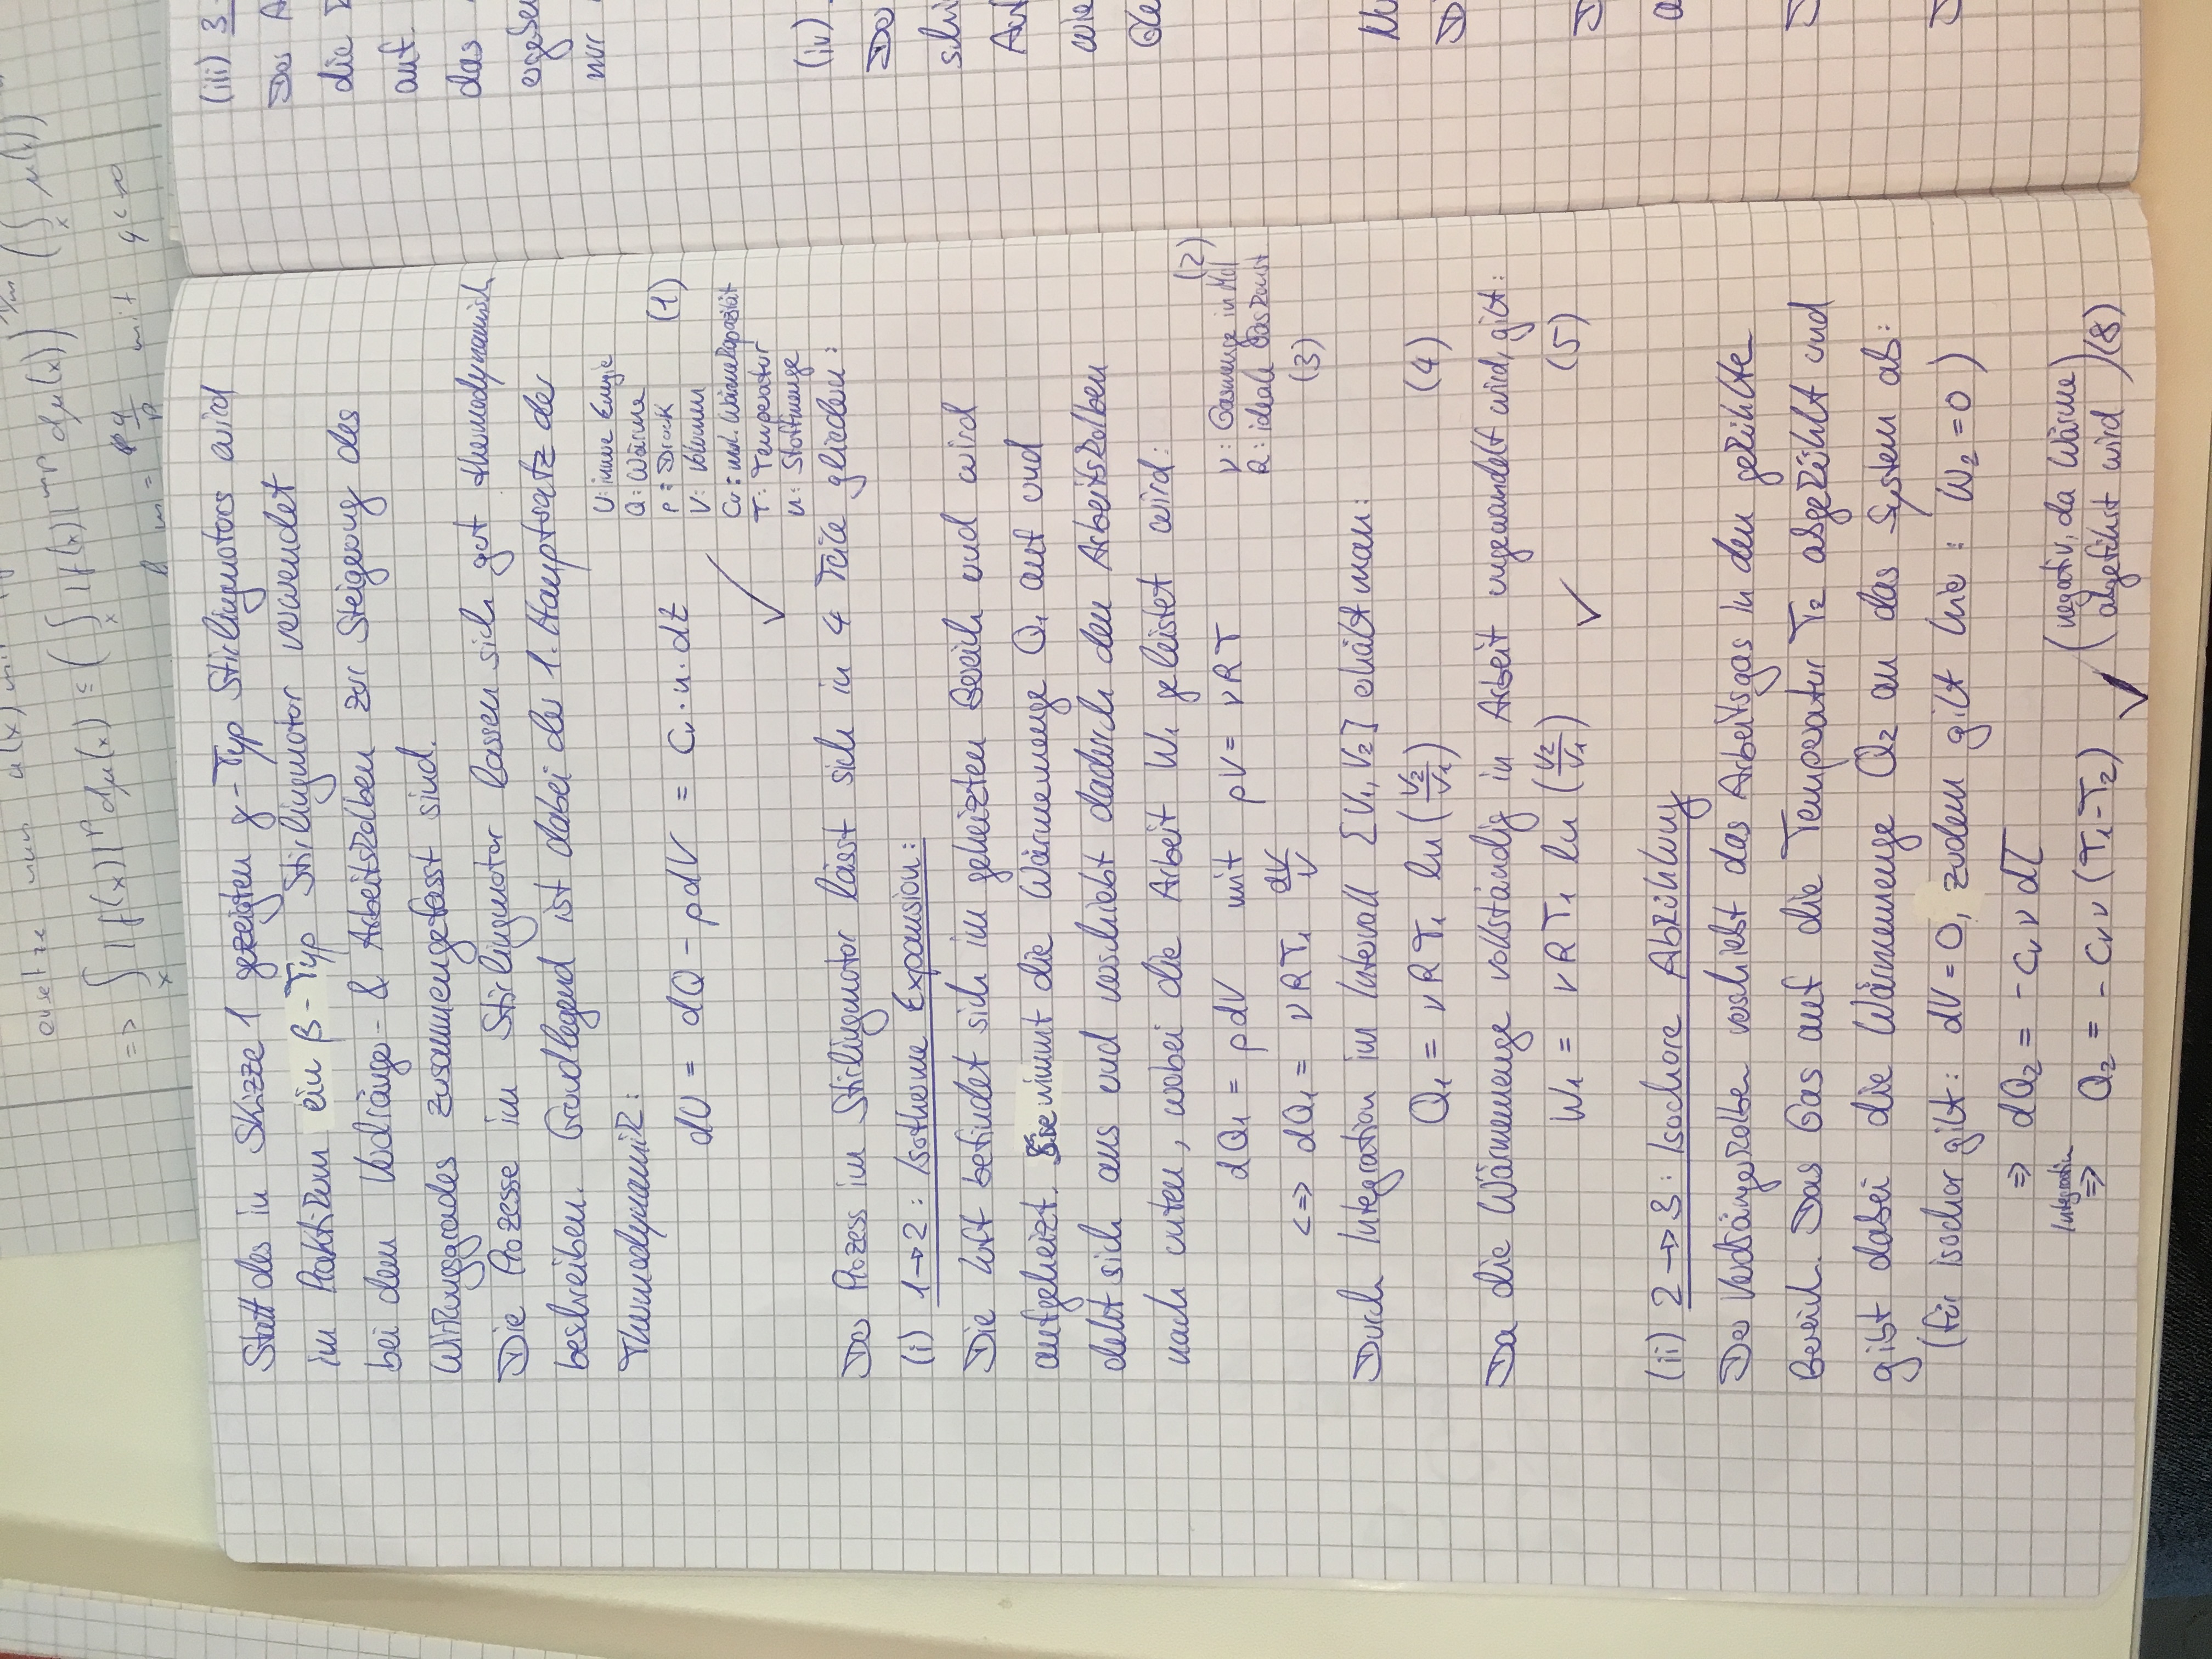 ersetze nun u(x) mit
=> ∫_X |f(x)|^p dμ(x) ≤ (∫_X |f(x)|^mp dμ(x))^1/m (∫_X μ(x))
m = q/p mit q < ∞
Statt des in Skizze 1 gezeigten γ-Typ Stirlingmotors wird
im Praktikum ein β-Typ Stirlingmotor verwendet
bei dem Verdränge- & Arbeitskolben zur Steigerung des
Wirkungsgrades zusammengefasst sind.
Die Prozesse im Stirlingmotor lassen sich gut thermodynamisch
beschreiben. Grundlegend ist dabei der 1. Hauptsatz der
Thermodynamik:
dU = dQ - pdV = Cv · n · dT (1)
U: innere Energie
Q: Wärme
p: Druck
V: Volumen
Cv: mol. Wärmekapazität
T: Temperatur
n: Stoffmenge
✓
Der Prozess im Stirlingmotor lässt sich in 4 Teile gliedern:
(i) 1→2: Isotherme Expansion:
Die Luft befindet sich im geheizten Bereich und wird
aufgeheizt. Sie nimmt die Wärmemenge Q₁ auf und
dehnt sich aus und verschiebt dadurch den Arbeitskolben
nach unten, wobei die Arbeit W₁ geleistet wird:
dQ₁ = pdV mit pV = νRT (2)
ν: Gasmenge in Mol
R: ideale Gaskonst.
<=> dQ₁ = νRT₁ dV/V (3)
Durch Integration im Intervall [V₁, V₂] erhält man:
Q₁ = νRT₁ ln(V₂/V₁) (4)
Da die Wärmemenge vollständig in Arbeit umgewandelt wird, gilt:
W₁ = νRT₁ ln(V₂/V₁) ✓ (5)
(ii) 2→3: Isochore Abkühlung
Der Verdrängerkolben verschiebt das Arbeitsgas in den gekühlten
Bereich. Das Gas auf die Temperatur T₂ abgekühlt und
gibt dabei die Wärmemenge Q₂ an das System ab:
(für isochor gilt: dV = 0, zudem gilt hier: W₂ = 0)
⇒ dQ₂ = -Cv ν dT
Integration
⇒ Q₂ = -Cv ν (T₁-T₂) ✓ (negativ, da Wärme
abgeführt wird) (8)
(iii) 3
die
auf.
das
nur
(iv)
wie